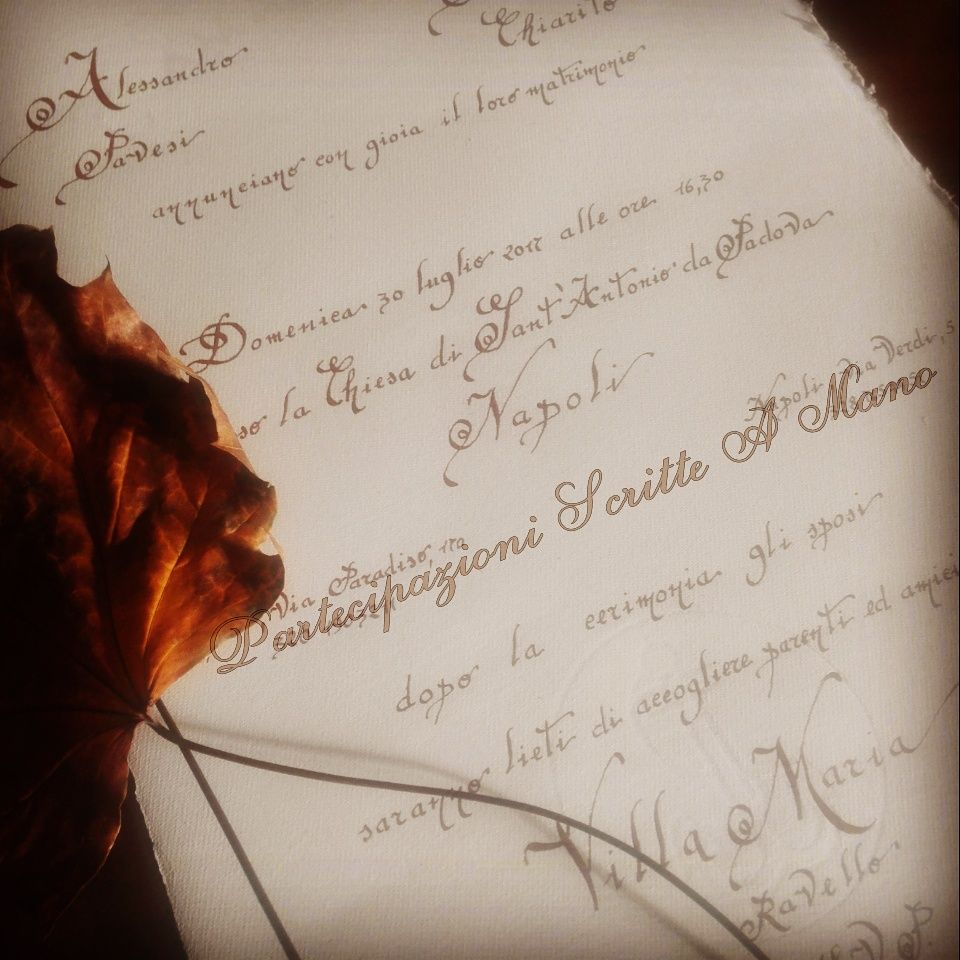 Chiarito
Alessandro
Pavesi
annunciano con gioia il loro matrimonio
Domenica 30 luglio 2017 alle ore 16,30
so la Chiesa di Sant'Antonio da Padova
Napoli
Napoli Via Verdi, 5
Via Paradiso, 17a
Partecipazioni Scritte A Mano
dopo la cerimonia gli sposi
saranno lieti di accogliere parenti ed amici
Villa Maria
Ravello